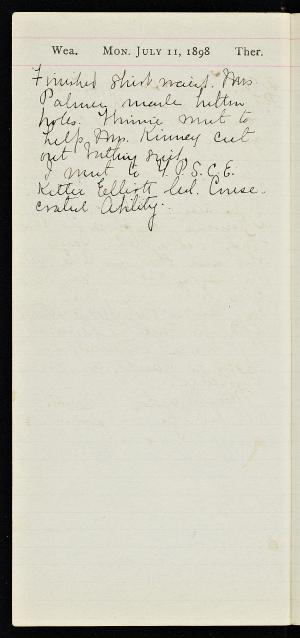 Wea. MON. JULY 11, 1898 Ther.
Finished shirt waist. Mrs.
Palmer made button
holes. Minnie went to
help Mrs. Kinney cut
out bathing suit.
I went to Y.P.S.C.E.
Kittie Elliott led. Conse-
crated Ability.